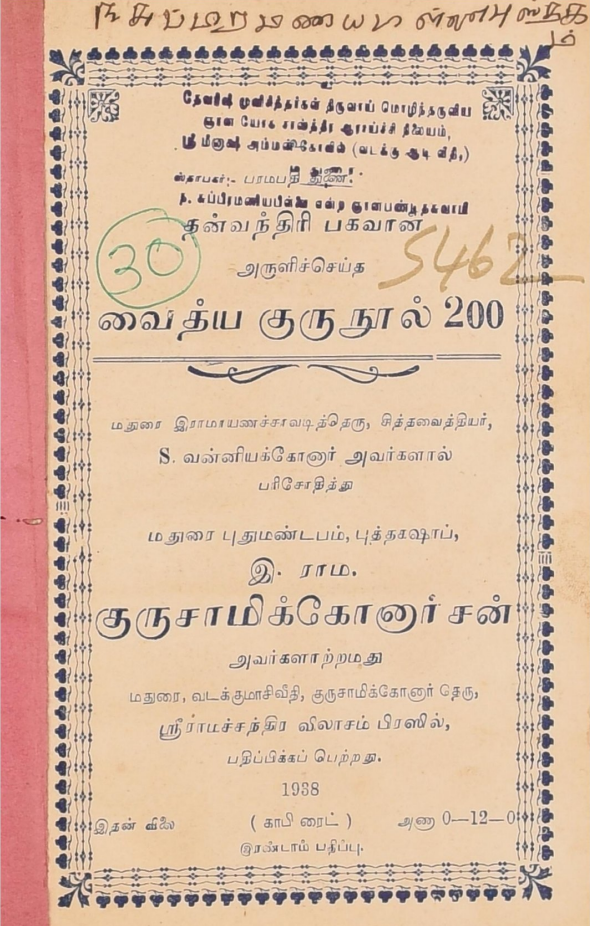 ந சுப்பிறமணிய பிள்ளை புஸ்தகம்
தேவரிஷி முனிசித்தர்கள் திருவாய் மொழிந்தருளிய
ஞான யோக சாஸ்த்திர ஆராய்ச்சி நிலையம்,
ஸ்ரீ மீனாக்ஷி அம்மன்கோவில் (வடக்கு ஆடி வீதி,)
மதுரை.
பரமபதி துணை.
ஸ்தாபகர்:-
ந. சுப்பிரமணியபிள்ளை என்ற ஞானபண்டிதசுவாமி
தன்வந்திரி பகவான்
30
அருளிச்செய்த
5462
வைத்ய குருநூல் 200
மதுரை இராமாயணச்சாவடித்தெரு, சித்தவைத்தியர்,
S. வன்னியக்கோனார் அவர்களால்
பரிசோதித்து
மதுரை புதுமண்டபம், புத்தகஷாப்,
இ. ராம.
குருசாமிக்கோனார் சன்
அவர்களாற்றமது
மதுரை, வடக்குமாசிவீதி, குருசாமிக்கோனார் தெரு,
ஸ்ரீராமச்சந்திர விலாசம் பிரஸில்,
பதிப்பிக்கப் பெற்றது.
1938
இதன் விலை ( காபி ரைட் ) அணா 0—12—0
இரண்டாம் பதிப்பு.